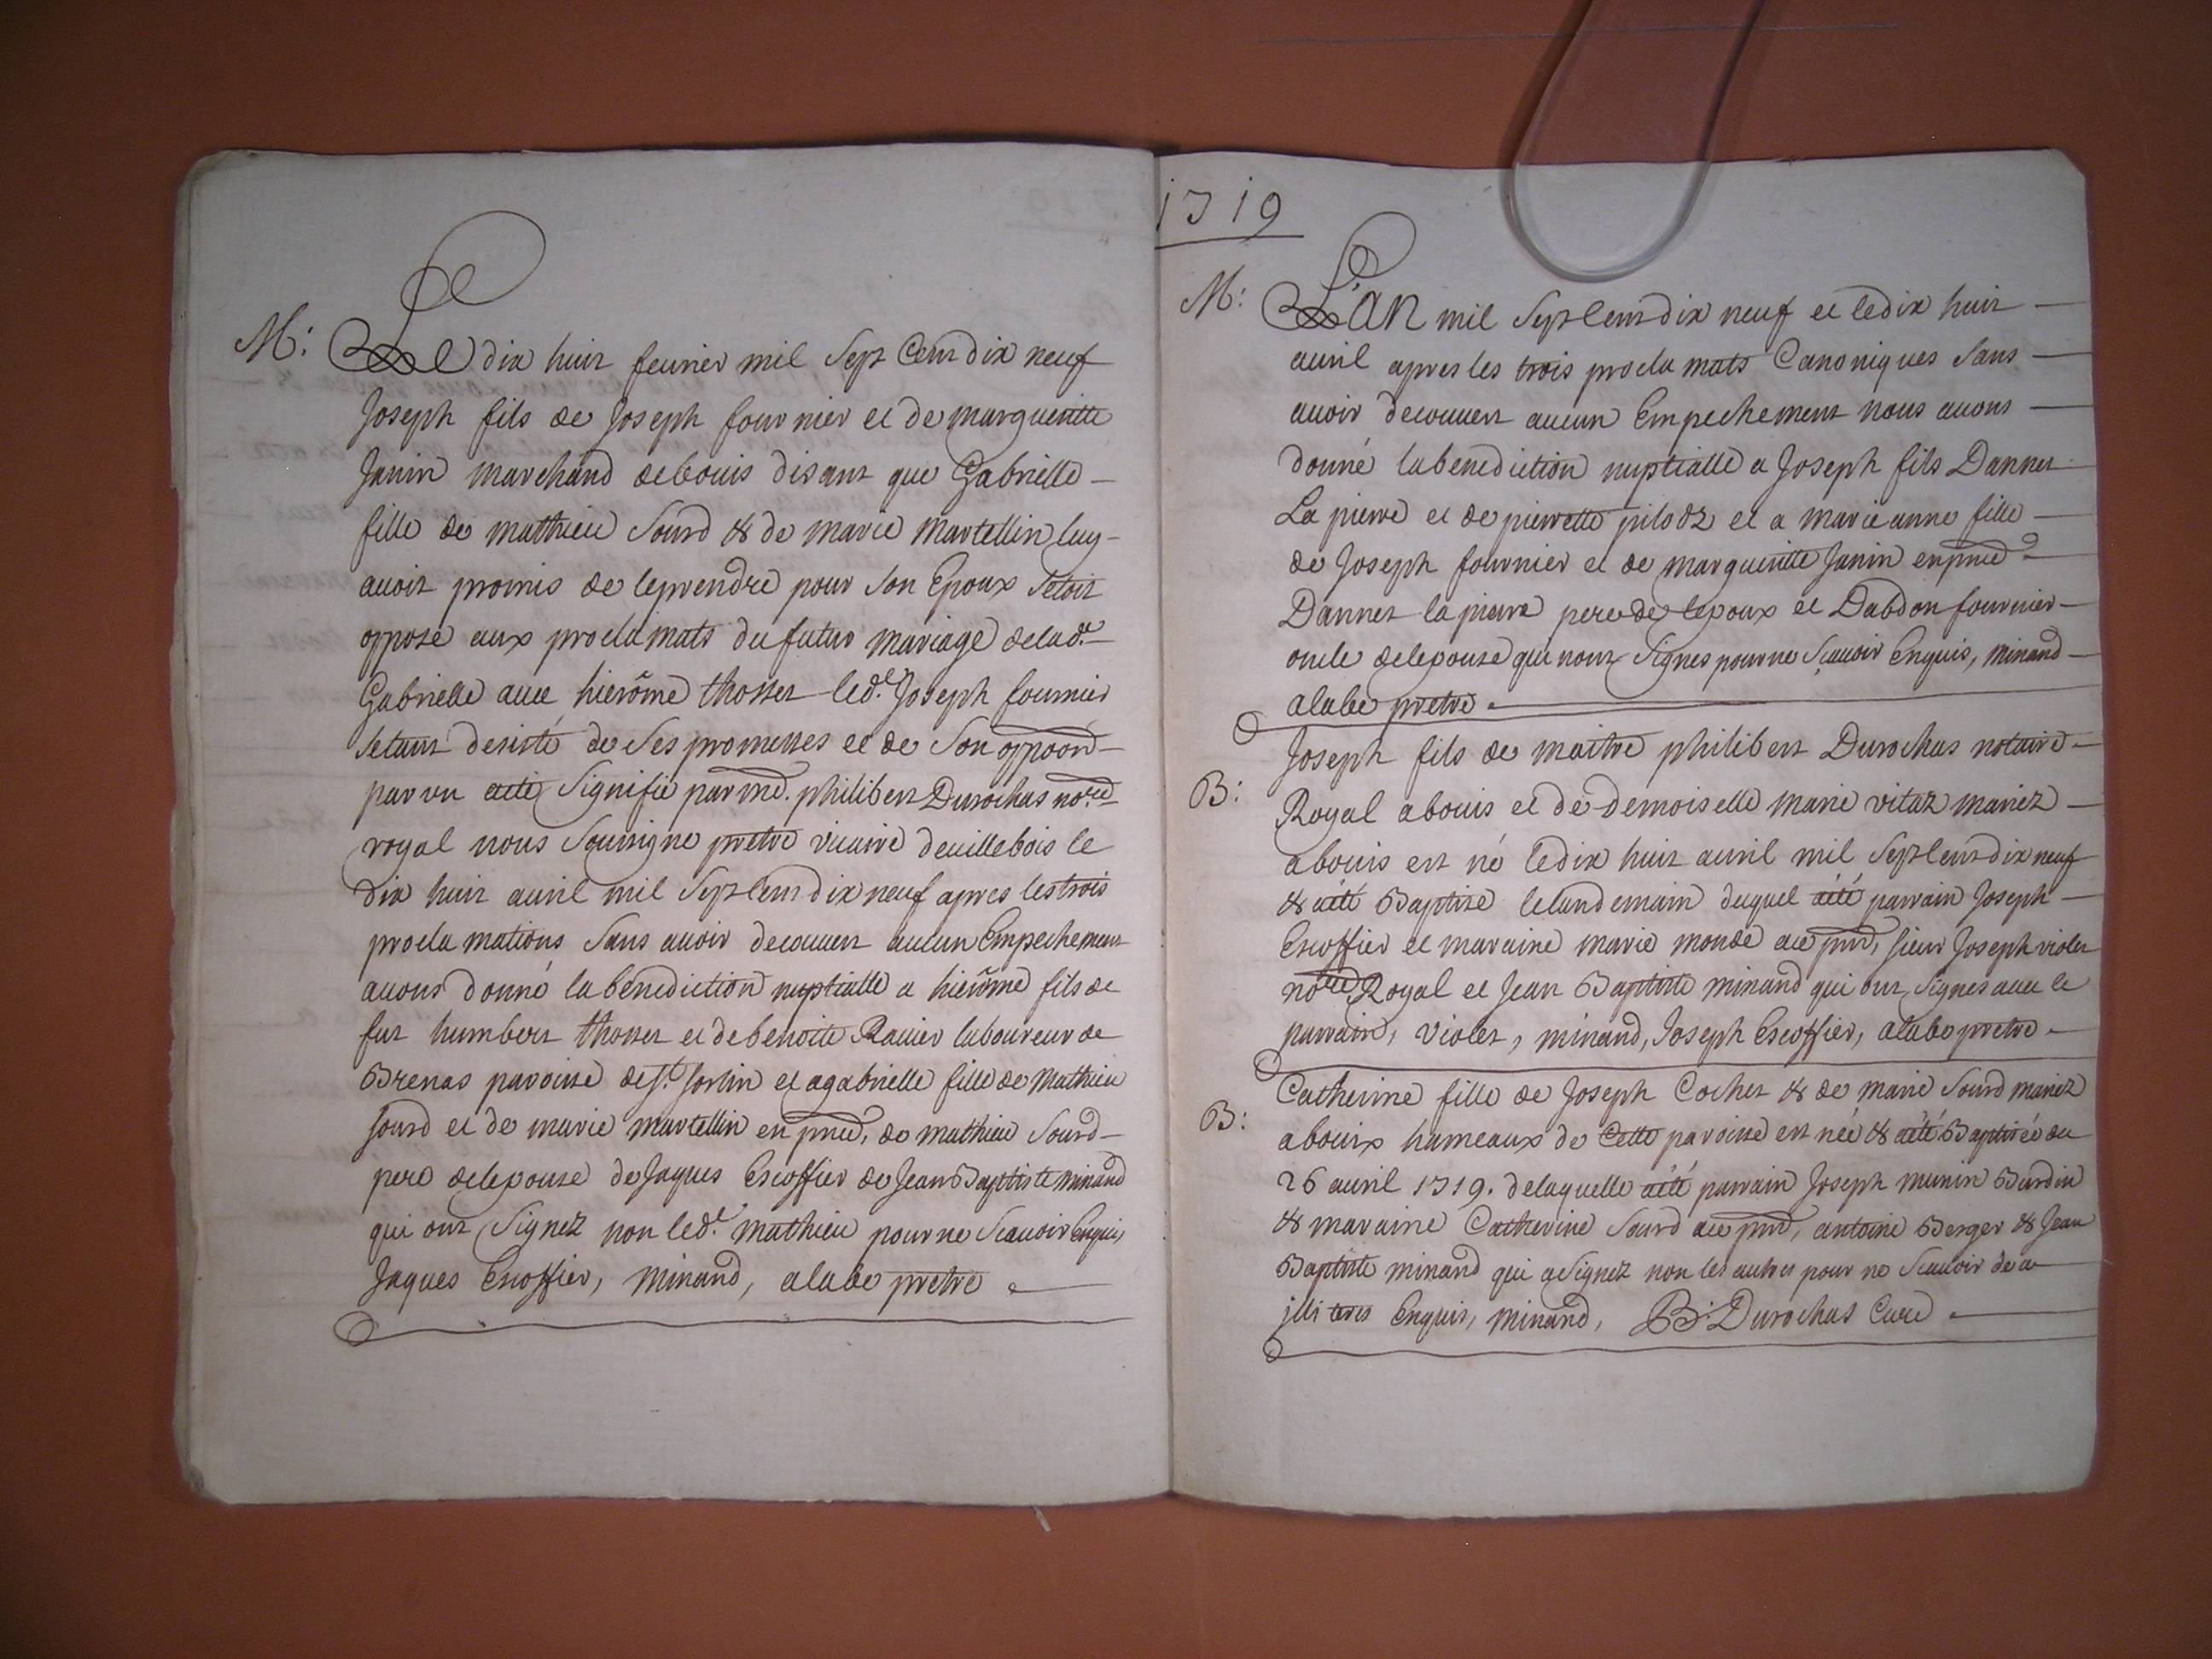 M:
Le dix huit feurier mil Sept Cent dix neuf
Joseph fils de Joseph fournier et de margueritte
Janin marchand de bouis disant que Gabrielle
fille de mathieu Sourd & de marie martellin luy
auoit promis de leprendre pour son Epoux setoit
opposé aux proclamats du futur mariage delad.e
Gabrielle auec hierôme thosset led.t Joseph fournier
setant desisté de Ses promesses et de Son oppoon
par un acte Signifié par me. philibert Durochas no.re
royal nous Soussigne pretre vicaire de uillebois le
dix huit auril mil Sept Cent dix neuf apres les trois
proclamations Sans auoir decouuert aucun Empechement
auons donné la bénédiction nuptialle a hierôme fils de
fut humbert thosset et de benoite Rauier laboureur de
Brenas paroisse de St. Sorlin et a gabrielle fille de Mathieu
sourd et de marie martellin en pnce, de mathieu Sourd
pere delepouse de Jaques Escoffier de Jean Baptiste minand
qui ont Signez non led.t mathieu pour ne Scauoir Enquis
Jaques Escoffier, minand, alabe pretre
1719
M:
L'AN mil Sept Cent dix neuf et le dix huit
auril apres les trois proclamats Canoniques sans
auoir decouuert aucun Empechement nous auons
donné la benediction nuptialle a Joseph fils Dannet
La pierre et de pierrette pilodz et a marie anne fille
de Joseph fournier et de margueritte Janin en pnce
Dannet la pierre pere de lepoux et Dabdon fournier
oncle delepouse qui nont Signes pour ne Scauoir Enquis, minand
alabe pretre
B:
Joseph fils de maitre philibert Durochas notaire
Royal a bouis et de demoiselle marie vitaz mariez
a bouis est né le dix huit auril mil Sept Cent dix neuf
& a été Baptisé le landemain duquel a été parrain Joseph
Escoffier et maraine marie monde a ce pnt, sieur Joseph violet
no.re Royal et Jean Baptiste minand qui ont Signes auec le
parrain, violet, minand, Joseph Escoffier, alabe pretre
B:
Catherine fille de Joseph Cochet & de marie Sourd mariez
a bouix hameaux de cette paroisse est née & a été Baptisée du
26 auril 1719. de laquelle a été parrain Joseph munin Burdin
& maraine Catherine Sourd a ce pnt, antoine Berger & Jean
Baptiste minand qui a Signez non les autres pour ne Scauoir de ce
illi teres Enquis, minand, B. Durochas Curé